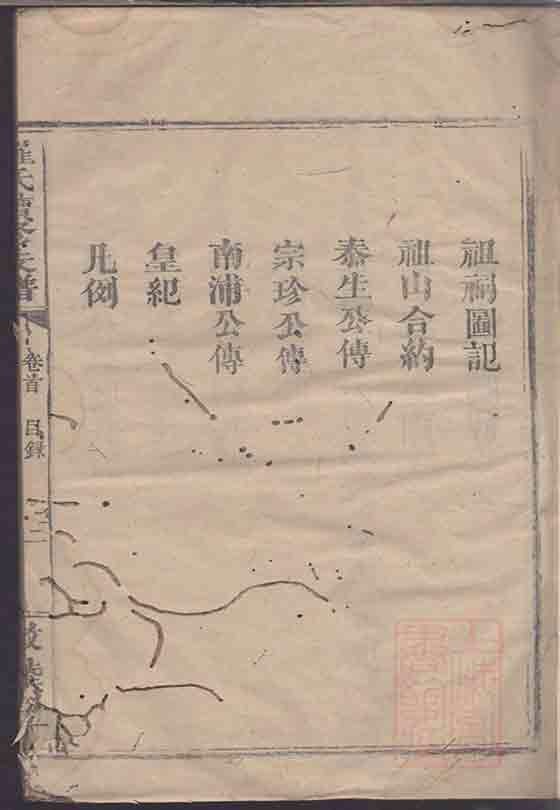 祖祠圖記
祖山合約
泰生公傳
宗珍公傳
南浦公傳
皇紀
凡例
氏續修族譜
卷首 目錄 二